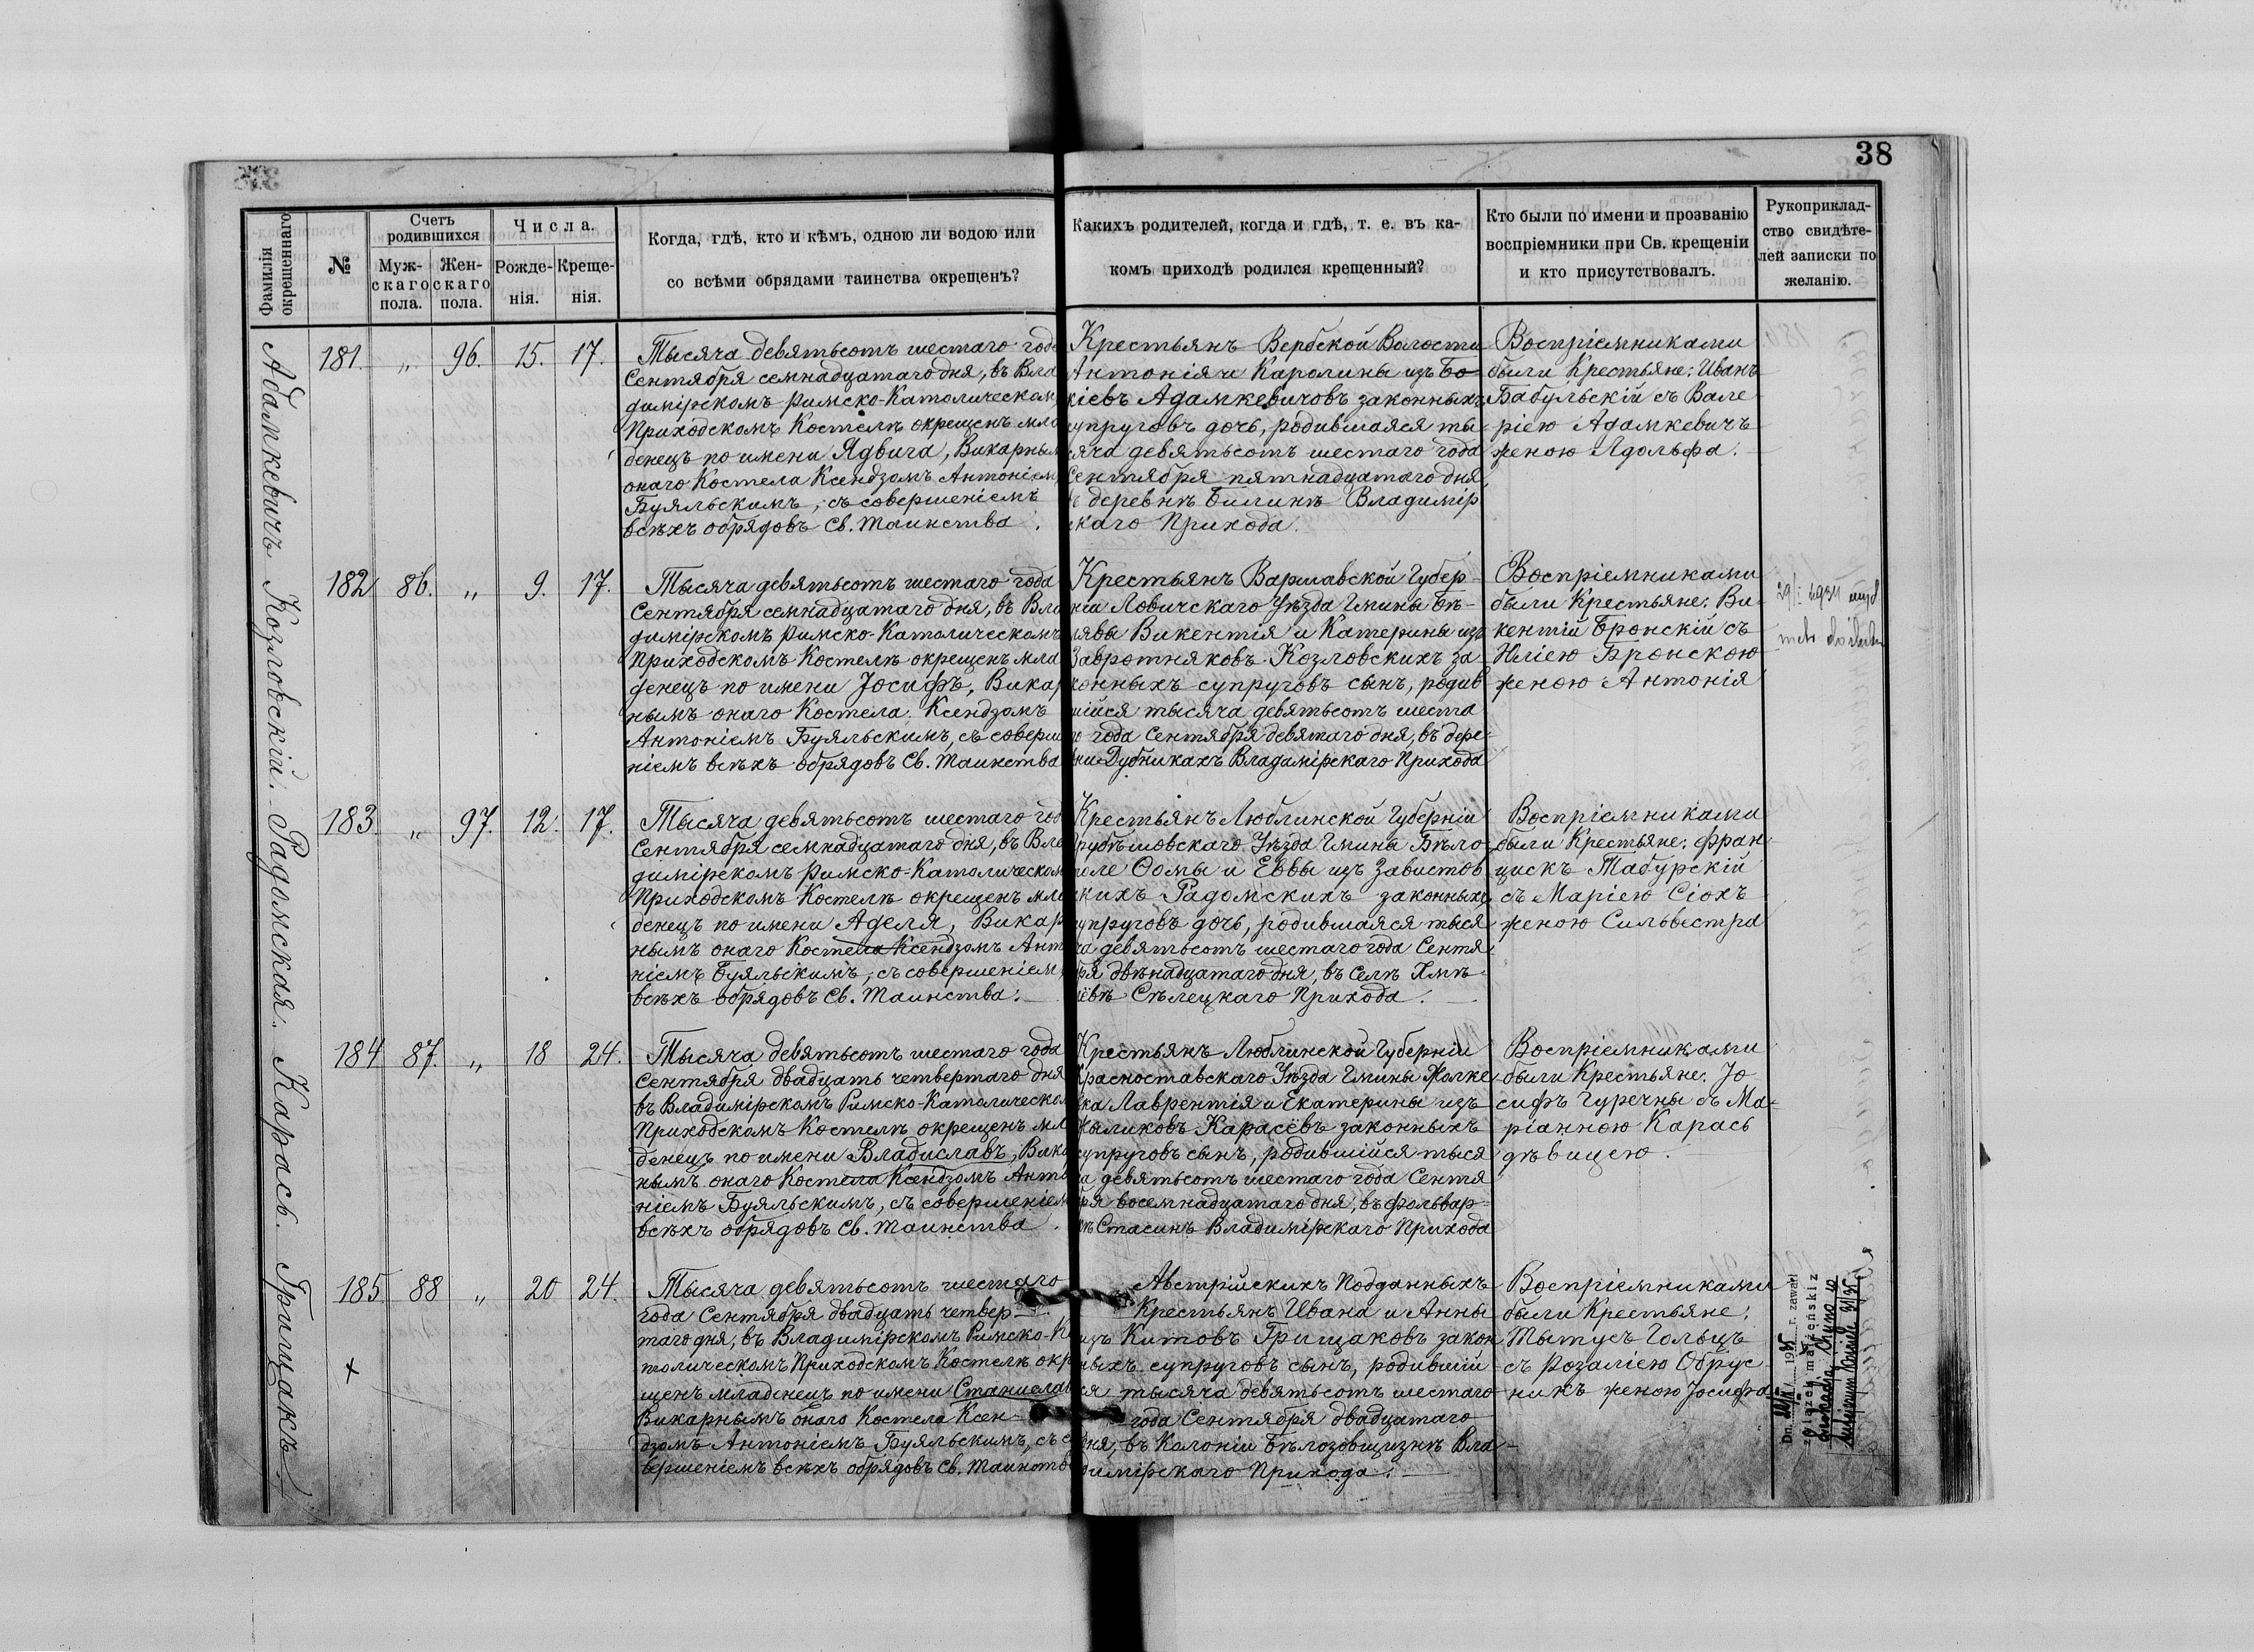 38
Фамилія окрещеннаго
№
Счетъ родившихся
Мужскаго пола.
Женскаго пола.
Числа.
Рожденія.
Крещенія.
Когда, гдѣ, кто и кѣмъ, одною ли водою или
со всѣми обрядами таинства окрещенъ?
Какихъ родителей, когда и гдѣ, т. е. въ ка-
комъ приходѣ родился крещенный?
Кто были по имени и прозванію
воспріемники при Св. крещеніи
и кто присутствовалъ.
Рукоприклад-
ство свидѣте-
лей записки по
желанію.
Адамкевичъ
181. " 96. 15. 17.
Тысяча девятьсотъ шестаго года
Сентября семнадцатаго дня, въ Вла
димірскомъ Римско-Католическом
Приходскомъ Костелѣ окрещенъ мла
денецъ по имени Ядвига, Викарным
онаго Костела Ксендзомъ Антоніем
Буяльскимъ, съ совершеніемъ
всѣхъ обрядовъ Св. Таинства.
Крестьянъ Вербской Волости
Антонія и Каролины изъ Бо
кіевъ Адамкевичовъ законныхъ
супруговъ дочь, родившаяся ты
сяча девятьсотъ шестаго года
Сентября пятнадцатаго дня
деревнѣ Билинѣ Владимір
скаго Прихода.
Воспріемниками
были Крестьяне: Иванъ
Бабульскій съ Вале
ріею Адамкевичъ
женою Адольфа.
Козловскій.
182 86. " 9. 17.
Тысяча девятьсотъ шестаго года
Сентября семнадцатаго дня, въ Вла
димірскомъ Римско-Католическомъ
Приходскомъ Костелѣ окрещенъ мла
денецъ по имени Іосифъ, Викар
нымъ онаго Костела Ксендзомъ
Антоніемъ Буяльскимъ, съ соверше
ніемъ всѣхъ обрядовъ Св. Таинства
Крестьянъ Варшавской Губер-
ніи Ловичскаго Уѣзда Гмины Бѣ-
лявы Викентія и Катерины изъ
Завротняковъ Козловскихъ за-
конныхъ супруговъ сынъ, родив
шійся тысяча девятьсотъ шеста
го года Сентября девятаго дня, въ дере-
вни Дубникахъ Владимірскаго Прихода
Воспріемниками
были Крестьяне: Ви-
кентій Бронскій съ
Юліею Бронскою
женою Антонія
Радомская.
183 " 97. 12. 17.
Тысяча девятьсотъ шестаго год
Сентября семнадцатаго дня, въ Вла
димірскомъ Римско-Католическом
Приходскомъ Костелѣ окрещенъ мла
денецъ по имени Аделя, Викар
нымъ онаго Костела Ксендзомъ Анто
ніемъ Буяльскимъ, съ совершеніем
всѣхъ обрядовъ Св. Таинства.
Крестьянъ Люблинской Губерніи
Грубѣшовскаго Уѣзда Гмины Бѣло-
поле Ѳомы и Еввы изъ Завистов
скихъ Радомскихъ законныхъ
супруговъ дочь, родившаяся тыся
ча девятьсотъ шестаго года Сентя
бря двѣнадцатаго дня, въ селѣ Хмѣ-
лёвѣ Сѣлецкаго Прихода.
Воспріемниками
были Крестьяне: Фран
цискъ Табурскій
съ Маріею Сіохъ
женою Сильвестра
Карась.
184 87. " 18 24.
Тысяча девятьсотъ шестаго года
Сентября двадцать четвертаго дня
въ Владимірскомъ Римско-Католическом
Приходскомъ Костелѣ окрещенъ мла
денецъ по имени Владиславъ, Вика
нымъ онаго Костела Ксендзомъ Анто
ніемъ Буяльскимъ, съ совершеніем
всѣхъ обрядовъ Св. Таинства.
Крестьянъ Люблинской Губерніи
Красноставскаго Уѣзда Гмины Жолке
вка Лаврентія и Екатерины изъ
Карасёвъ законныхъ
супруговъ сынъ, родившійся тыся
ча девятьсотъ шестаго года Сентя
бря восемнадцатаго дня, въ фольвар-
кѣ Стасинъ Владимірскаго Прихода
Воспріемниками
были Крестьяне: Іо
сифъ Гуречны съ Ма-
ріанною Карась
дѣвицею.
Грицакъ.
185 88 " 20 24.
+
Тысяча девятьсотъ шестаго
года Сентября двадцать четвер-
таго дня, въ Владимірскомъ Римско-Ка
толическомъ Приходскомъ Костелѣ окре
щенъ младенецъ по имени Станислав
Викарнымъ онаго Костела Ксен-
дзомъ Антоніемъ Буяльскимъ, съ со
вершеніемъ всѣхъ обрядовъ Св. Таинств
Австрійскихъ Подданныхъ
Крестьянъ Ивана и Анны
изъ Китовъ Грицаковъ закон
ныхъ супруговъ сынъ, родившій
ся тысяча девятьсотъ шестаго
года Сентября двадцатаго
дня, въ Колоніи Бѣлозовщизнѣ Вла-
димірскаго Прихода.
Воспріемниками
были Крестьяне:
Тытусъ Гольцъ
съ Розаліею Обрус-
никъ женою Іосифа
Dn. 1935 r. zawarł
związek małżeński z